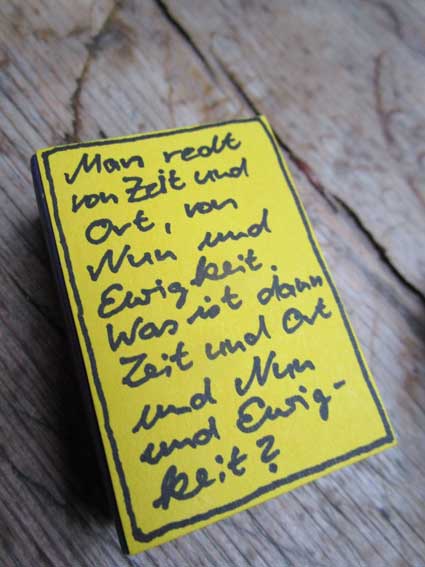 Man redt
von Zeit und
Ort, von
Nun und
Ewigkeit.
Was ist dann
Zeit und Ort
und Nun
und Ewig-
keit?